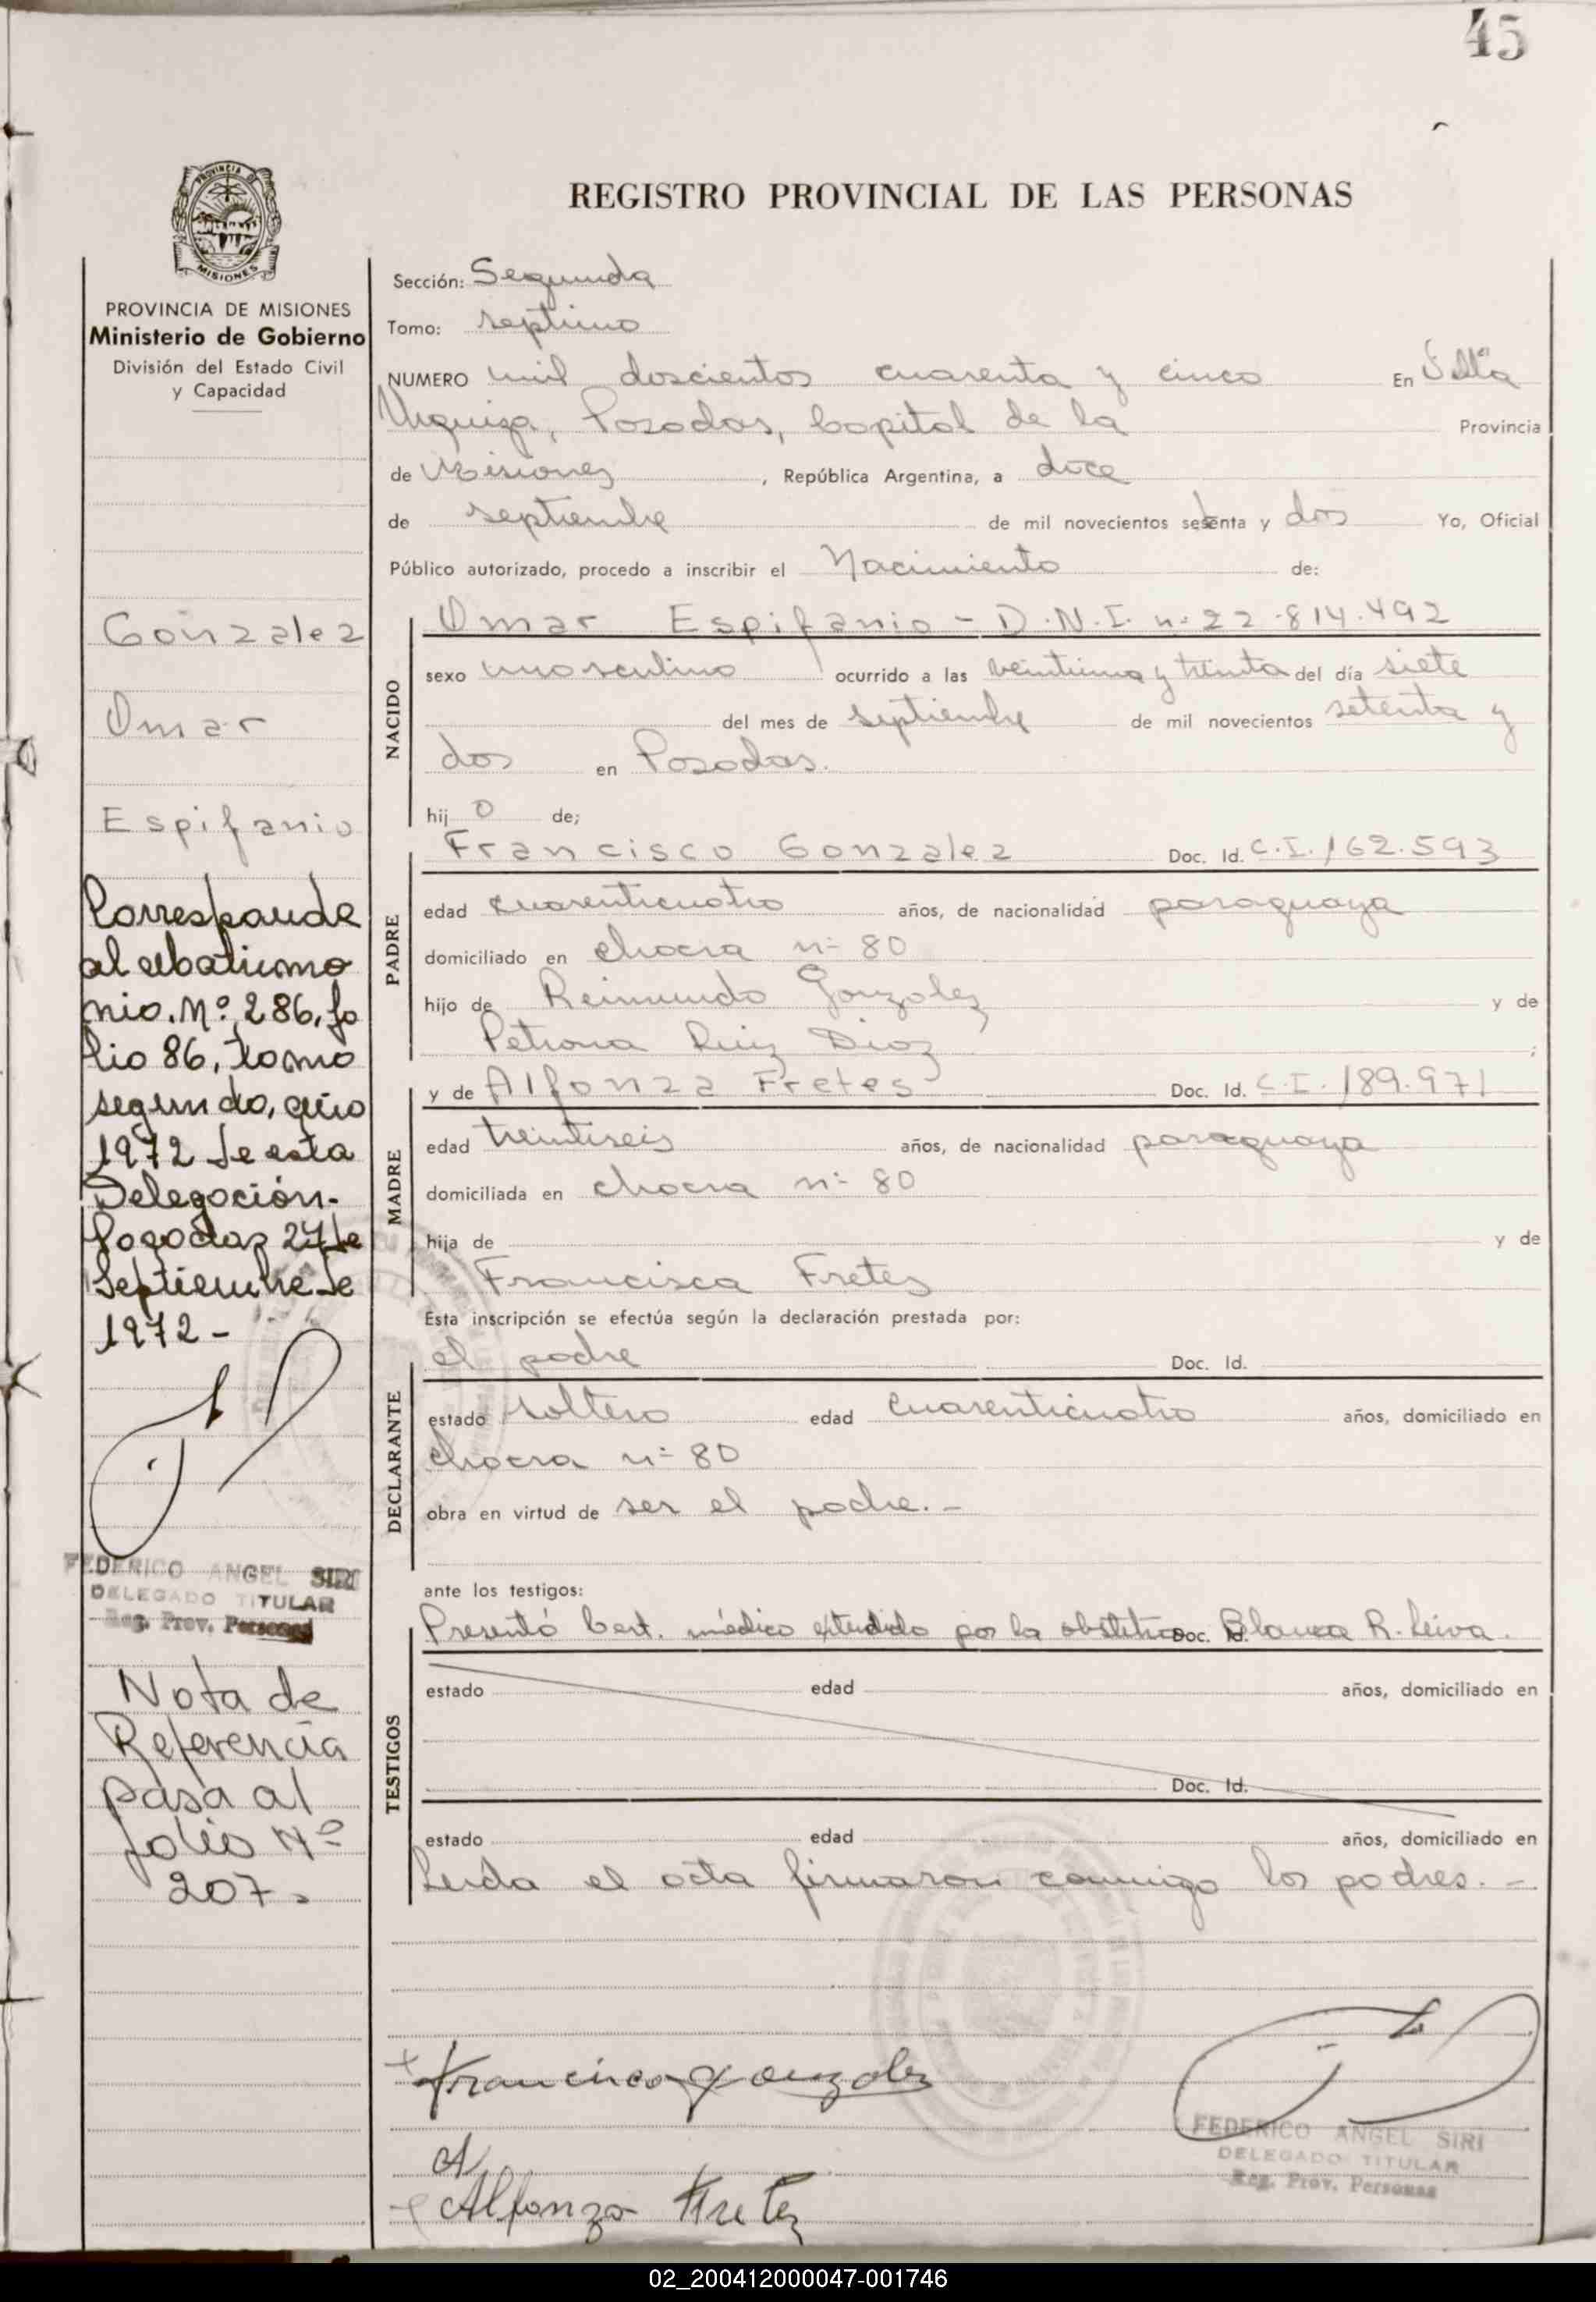 45
PROVINCIA DE
MISIONES
REGISTRO PROVINCIAL DE LAS PERSONAS
PROVINCIA DE MISIONES
Ministerio de Gobierno
División del Estado Civil
y Capacidad
Gonzalez
Omar
Espifanio
Corresponde
al
nio. Nº 286, fo
lio 86, tomo
segundo, año
1972 de esta
Delegación.
Posadas 27 de
Septiembre de
1972 -
FEDERICO ANGEL SIRI
DELEGADO TITULAR
Reg. Prov. Personas
Nota de
Referencia
pasa al
folio Nº
207.
Sección: Segunda
Tomo: septimo
NUMERO mil doscientos cuarenta y cinco En Villa
Urquiza, Posadas, Capital de la Provincia
de Misiones, República Argentina, a doce
de septiembre de mil novecientos setenta y dos Yo, Oficial
Público autorizado, procedo a inscribir el Nacimiento de:
NACIDO
Omar Espifanio - D.N.I. nº 22.814.492
sexo masculino ocurrido a las veintiuna y treinta del día siete
del mes de septiembre de mil novecientos setenta y
dos en Posadas.
hij o de;
PADRE
Francisco Gonzalez Doc. Id. C.I. 162.593
edad cuarenticuatro años, de nacionalidad paraguaya
domiciliado en chacra nº 80
hijo de Reimundo Gonzalez y de
Petrona Ruiz Diaz ;
MADRE
y de Alfonza Fretes Doc. Id. C.I. 189.971
edad treintiseis años, de nacionalidad paraguaya
domiciliada en chacra nº 80
hija de y de
Francisca Fretez
Esta inscripción se efectúa según la declaración prestada por:
DECLARANTE
el padre Doc. Id.
estado soltero edad cuarenticuatro años, domiciliado en
chacra nº 80
obra en virtud de ser el padre. -
ante los testigos:
TESTIGOS
Presentó Cert. médico extendido por la obstetrica Doc. Id. Blanca R. Leiva.
estado edad años, domiciliado en
Doc. Id.
estado edad años, domiciliado en
Leida el acta firmaron conmigo los padres. -
Francisco Gonzalez
A
Alfonza Fretez
FEDERICO ANGEL SIRI
DELEGADO TITULAR
Reg. Prov. Personas
02_200412000047-001746